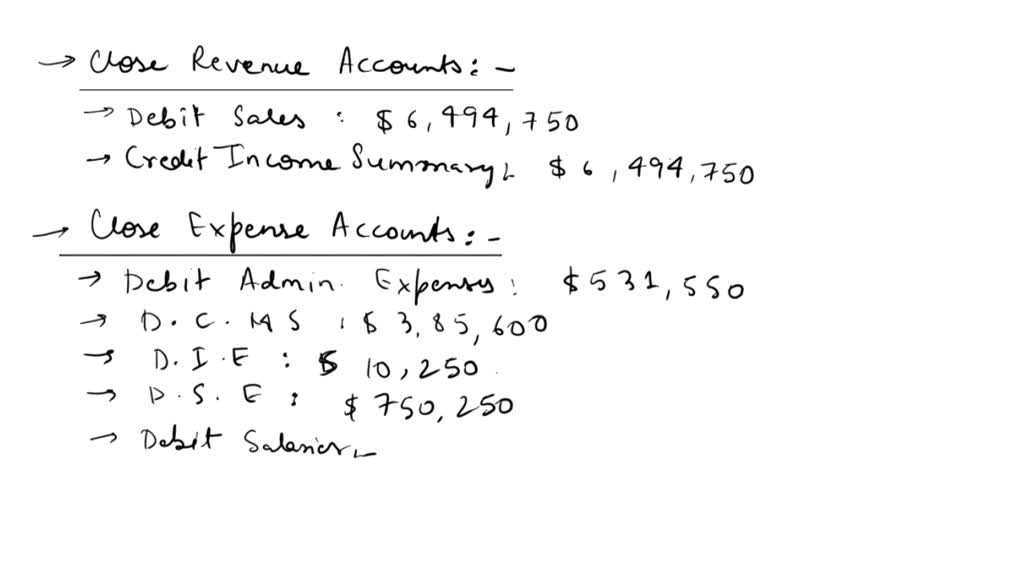 → Close Revenue Accounts: -
→ Debit Sales : $ 6,494,750
→ Credit Income Summary, $ 6,494,750
→ Close Expense Accounts: -
→ Debit Admin. Expenses: $531,550
→ D. C. M S : $ 3,85,600
→ D. I. E : $ 10,250
→ D. S. E : $ 750,250
→ Debit Salaries